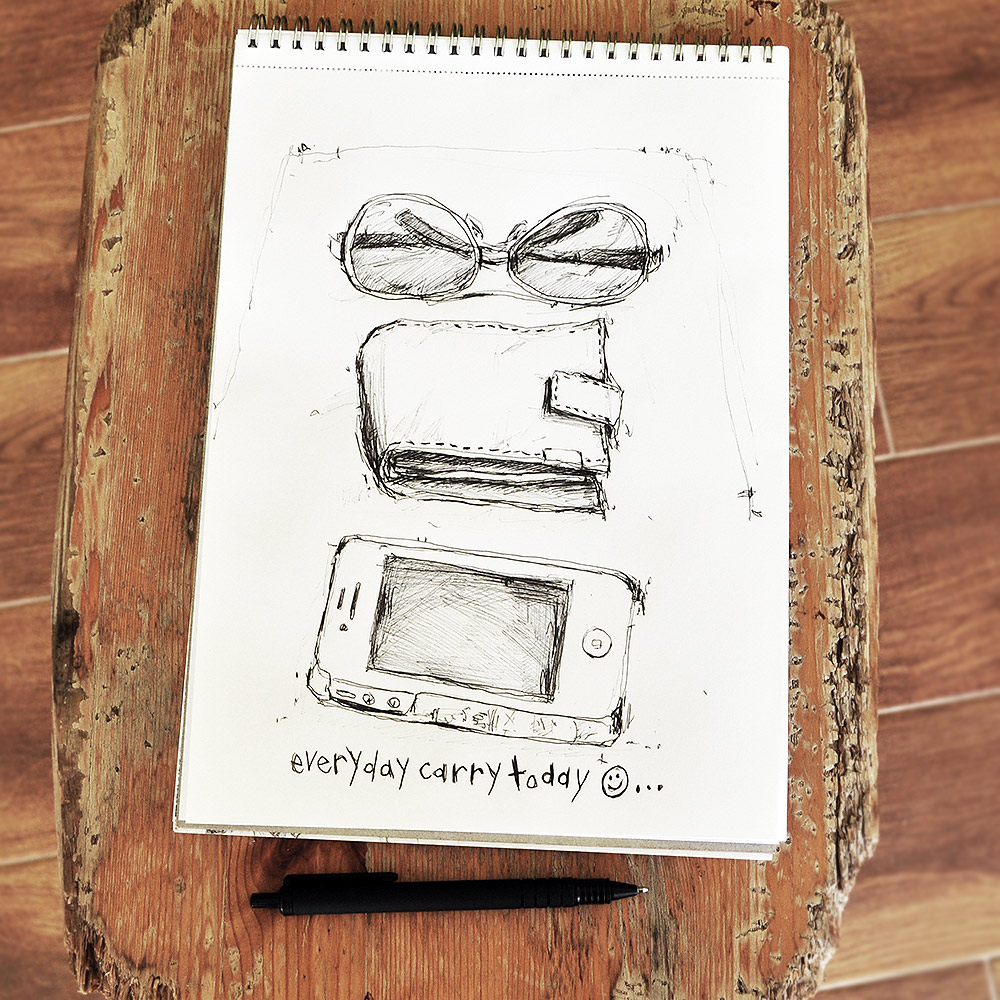 everyday carry today ☺...